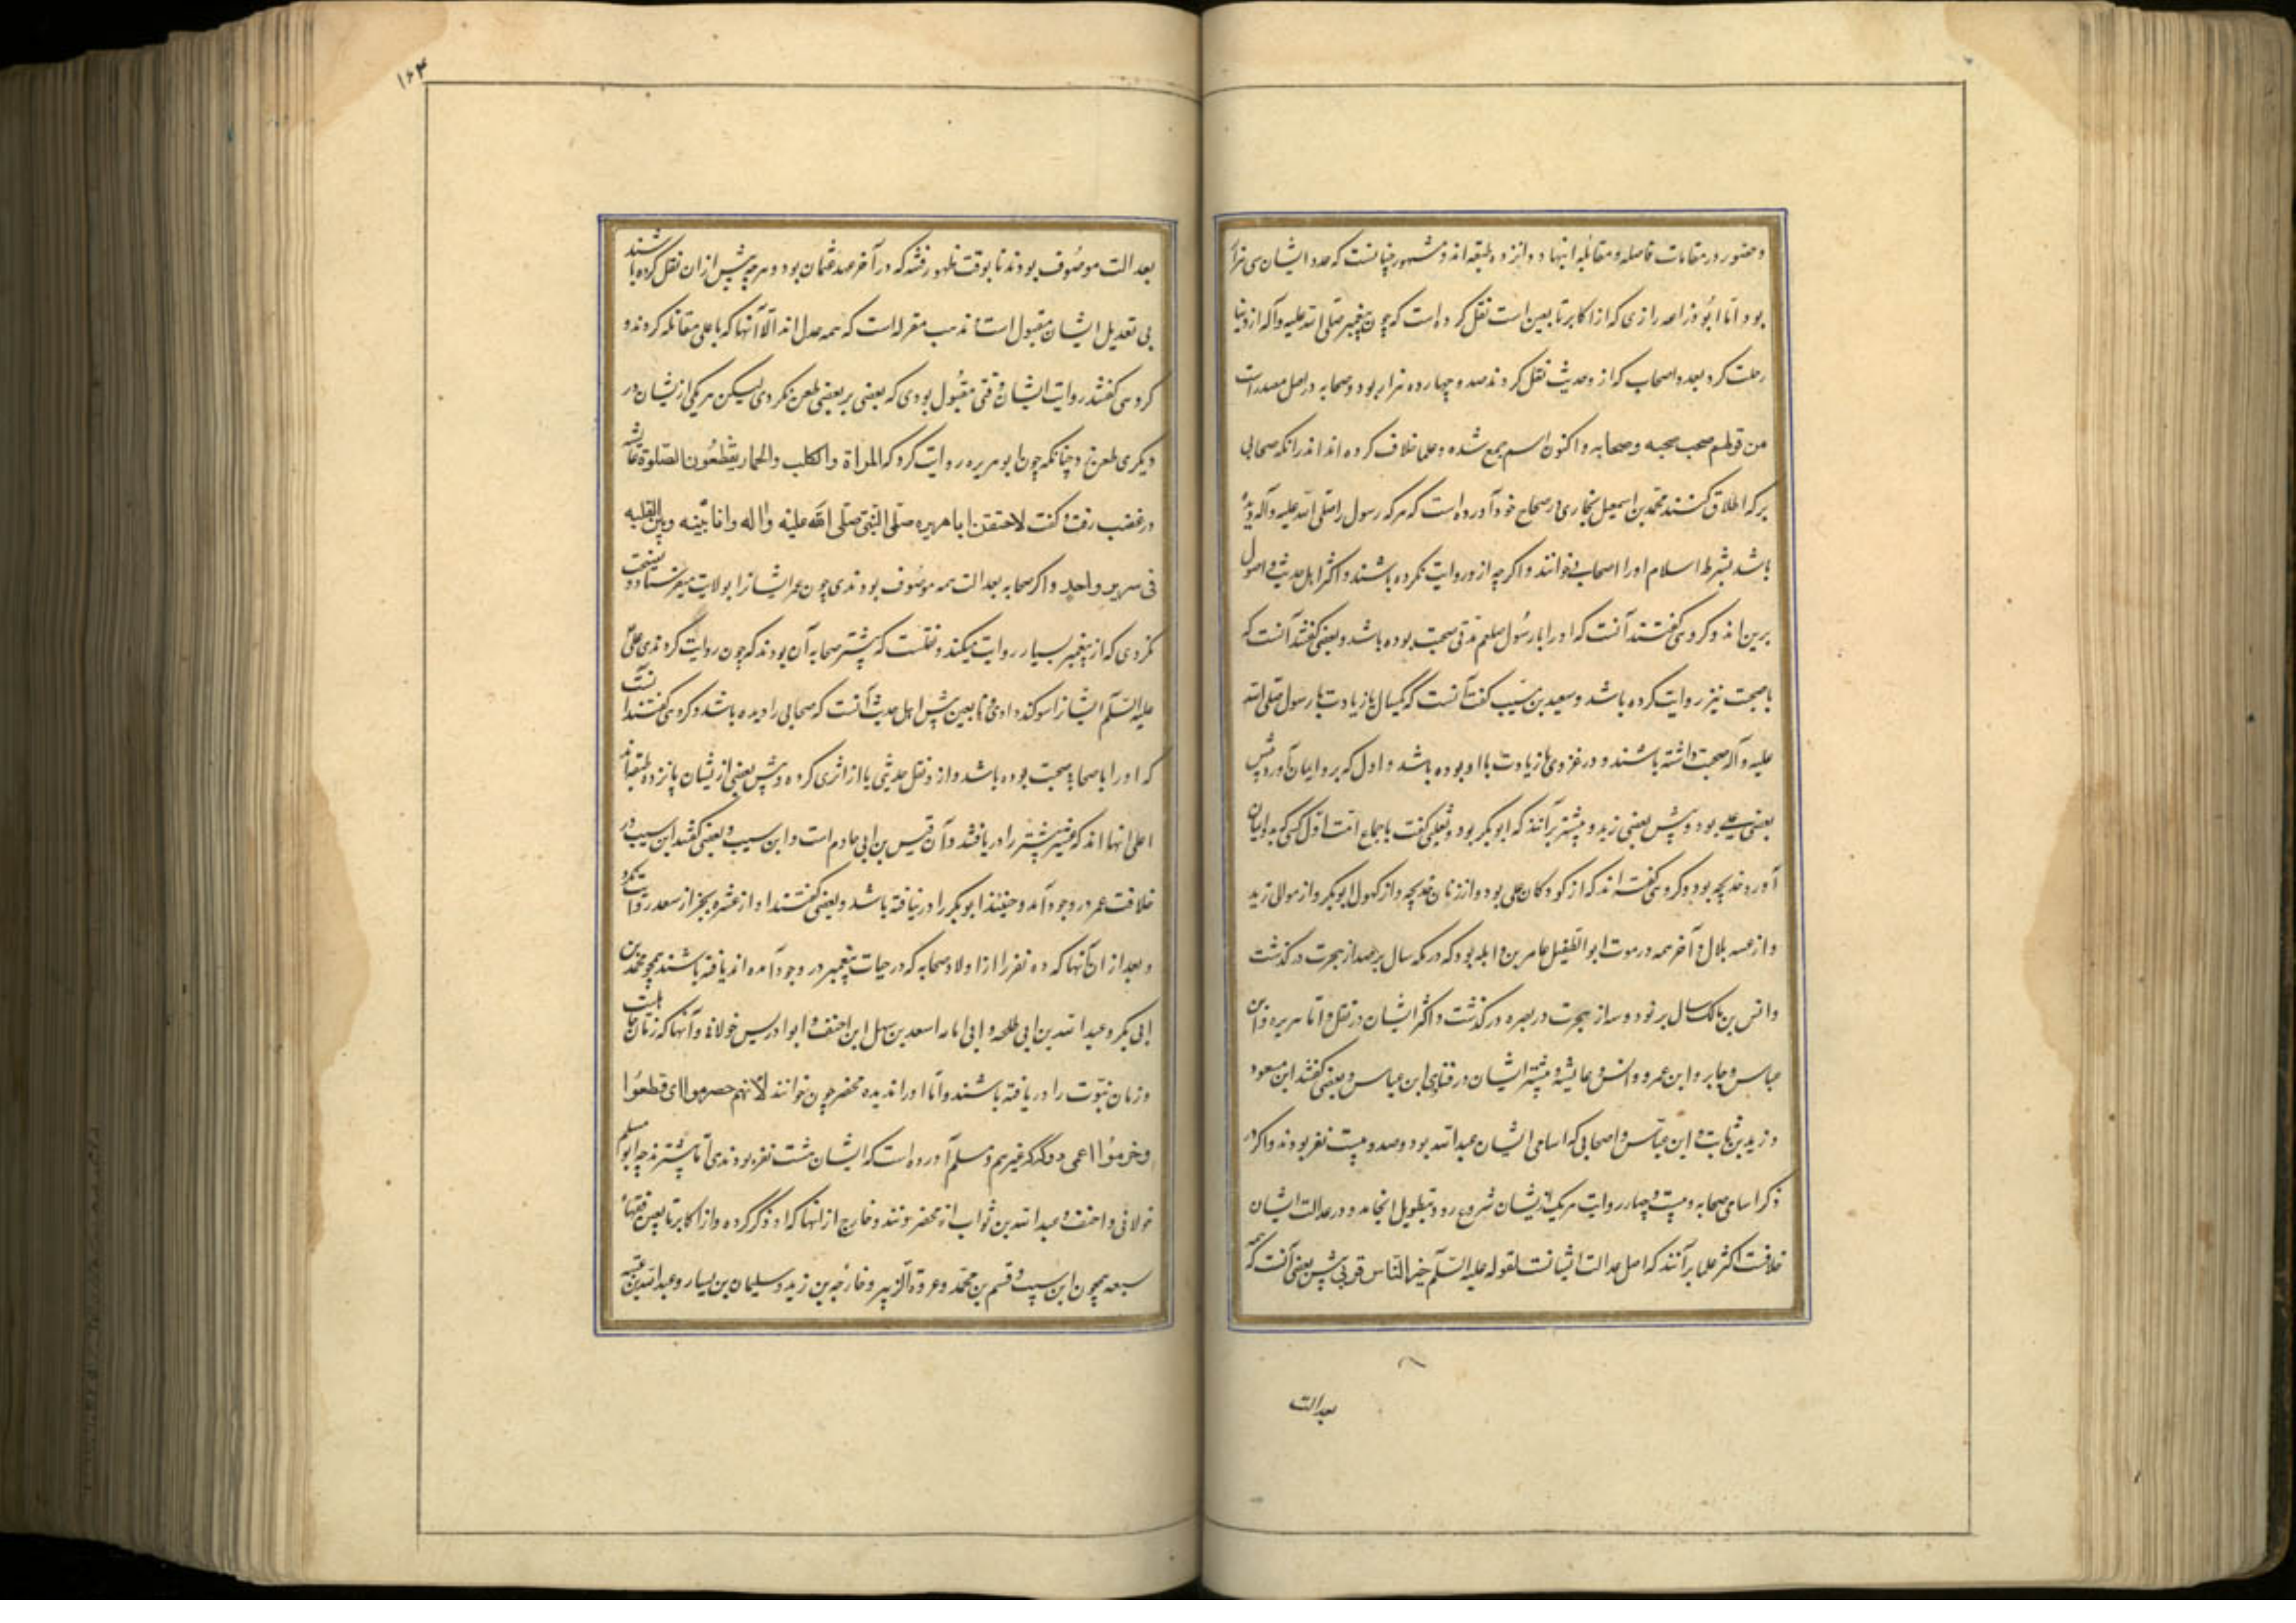 و حضور در مقامات فاضله و مقابله اینها دوازده طبقه‌اند و مشهور چنانست که عدد ایشان سی هزار
بود و اما ابو زراعه رازی که از اکابر تابعین است نقل کرده است که چون پیغمبر صلی الله علیه و آله از دنیا
رحلت کرد بعد و اصحاب که ازو حدیث نقل کردند صد و چهارده هزار بود و صحابه در اصل مصدر است
من قولهم صحب صحبه و صحابه و اکنون اسم جمع شده و علما خلاف کرده‌اند اندر انکه صحابی
بر که اطلاق کنند محمد بن اسمعیل بخاری در صحاح خود آورده است که هر که رسول را صلی الله علیه و آله دیده
باشد بشرط اسلام او را اصحاب خوانند و اگرچه ازو روایت نکرده باشند و اکثر اهل حدیث و اصول
برین‌اند و کروهی گفتند آنست که او را با رسول صلعم مدتی صحبت بوده باشد و بعضی گفتند آنست که
با صحبت نیز روایت کرده باشد و سعید بن مسیب گفت آنست که یکسال یا زیادت با رسول صلی الله
علیه و آله صحبت داشته باشند و در غزوی یا زیادت با او بوده باشد و اول که برو ایمان آورد پیش
بعضی علی بود و پیش بعضی زید و بیشتر برآنند که ابوبکر بود و ثعلبی گفت باجماع امت اول کسی که بدو ایمان
آورد خدیجه بود و کروهی گفته‌اند که از کودکان علی بود و از زنان خدیجه و از کهول ابوبکر و از موالی زید
و از حبشه بلال و آخر همه در موت ابو الطفیل عامر بن واثله بود که در مکه سال بر صد از هجرت درگذشت
و انس بن مالک سال بر نود و سه از هجرت در بصره درگذشت و اکثر ایشان در نقل و ابا هریره و ابن
عباس و جابر و ابن عمر و انس و عایشه و بیشتر ایشان در فتاوی ابن عباس و بعضی گفتند ابن مسعود
و زید بن ثابت و ابن عباس و اصحابی که اسامی ایشان عبدالله بود و صد و بیست نفر بودند و اگر در
ذکر اسامی صحابه و بیست و چهار روایت هر یک از ایشان شروع رود بتطویل انجامد و در عدالت ایشان
خلافست اکثر علما برآنند که اصل عدالت ایشانست لقوله علیه السلم خیر الناس قرنی پیش بعضی آنست که همه
بعدالت
۱۶۴
بعدالت موصوف بودند تا بوقت ظهور فتنه که در آخر عهد عثمان بود و هرچه پیش از ان نقل کرده باشند
بی تعدیل ایشان مقبول است مذهب معتزله است که همه عدل‌اند الا آنها که با علی مقاتله کردند و
کروهی گفتند روایت ایشان وقتی مقبول بودی که بعضی بر بعضی طعن نکردی لیکن هر یکی از یشان در
دیگری طعن زد چنانکه چون ابو هریره روایت کرد که المراة والکلب والحمار یقطعون الصلوة عایشه
در غضب رفت و گفت لاحتقرن ابا هریره صلی النبی صلی الله علیه واله وانا بینه وبین القبله
فی سریر واحد و اگر صحابه بعدالت همه موصوف بودندی چون عمر ایشان را بولایت میفرستاد و نصیحت
نکردی که از پیغمبر بسیار روایت میکنند و نقلست که بیشتر صحابه آن بودند که چون روایت کردندی علی
علیه السلم ایشان را سوکند دادی و تابعین پیش اهل حدیث آنست که صحابی را دیده باشد و کروهی گفتند آنست
که او را با صحابه صحبت بوده باشد و ازو نقل حدیثی یا از اثری کرده و پیش بعضی از یشان پانزده طبقه‌اند
اعلی انها اند که عشره مبشره را دریافتند و آن قیس بن ابی حازم است و ابن مسیب و بعضی گفتند ابن مسیب در
خلافت عمر در وجود آمد و حینئذ ابوبکر را درنیافته باشد و بعضی گفتند او از عشره بجز از سعد روایت نکرد
و بعد از ان آنها که ده نفر را از اولاد صحابه که در حیات پیغمبر در وجود آمده‌اند یافته باشند همچو محمد بن
ابی بکر و عبدالله بن ابی طلحه و ابی امامه اسعد بن سهل ابن احنف و ابو ادریس خولانی و آنها که زمان جاهلیت
و زمان نبوت را دریافته باشند و اما او را ندیده مخضرمون خوانند لانهم خضرموا ای قطعوا
و خرموا اعمی دوکر که غیرهم و مسلم آورده است که ایشان هشت نفر بودندی اما بیشترند چه ابو مسلم
خولانی و احنف و عبدالله بن ثواب از مخضرمونند و خارج از انها که او ذکر کرده و از اکابر تابعین فقهاء
سبعه همچون ابن مسیب و قسم بن محمد و عروة الزبیر و خارجه بن زید و سلیمان بن یسار و عبدالله بن عتبه